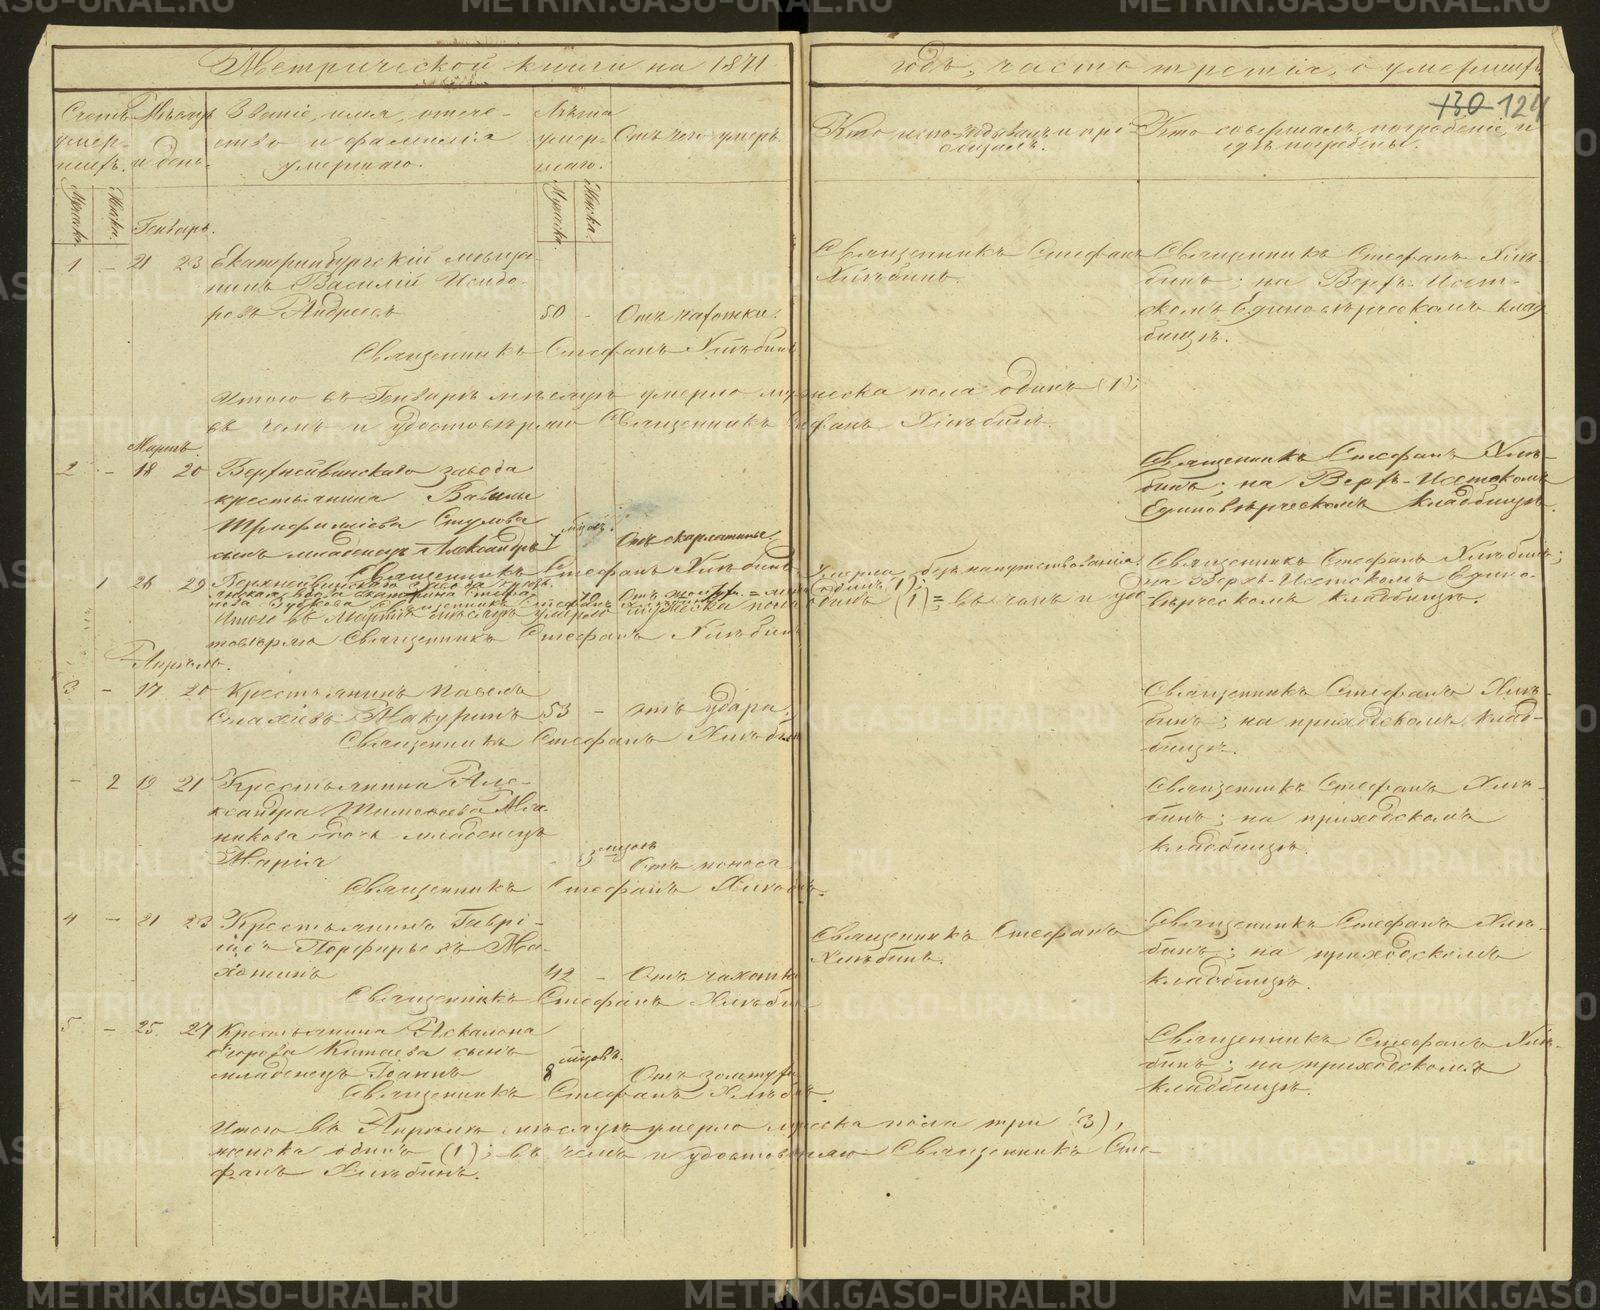 Метрической книги на 1871 годъ, часть третія, о умершихъ
130 124
Счетъ умер-шихъ.
Мѣсяцъ и день.
Званіе, имя, отече-
ство и фамилія
умершаго.
Лѣта
умер-
шаго.
Отъ чего умеръ.
Кто исповѣдывалъ и прі-
общалъ.
Кто совершалъ погребеніе и
гдѣ погребены.
Мужска. Женска.
Мужска. Женска.
Генварь.
1 - 21 23 Екатеринбургскій мѣща-
нинъ Василій Исидо-
ровъ Андреевъ 50 - Отъ чахотки.
Священникъ Стефанъ Хлѣбинъ
Священникъ Стефанъ
Хлѣбинъ.
Священникъ Стефанъ Хлѣ-
бинъ; на Верхъ-Исет-
скомъ Единовѣрческомъ клад
бищѣ.
Итого въ Генварѣ мѣсяцѣ умерло мужеска пола одинъ (1);
въ чемъ и удостовѣряю Священникъ Стефанъ Хлѣбинъ.
Мартъ.
2 - 18 20 Верхнейвинскаго завода
крестьянина Вавилы
Трифиліева Стулова
сынъ младенецъ Александръ Отъ скарлатины
Священникъ Стефанъ Хлѣбинъ
Священникъ Стефанъ Хлѣ-
бинъ; на Верхъ-Исетскомъ
Единовѣрческомъ кладбищѣ.
1 26 29 Верхнейвинскаго завода
Умерла безъ напутствованія.
Священникъ Стефанъ Хлѣбинъ;
на Верхъ-Исетскомъ Едино-
вѣрческомъ кладбищѣ.
Итого въ Мартѣ мѣсяцѣ умерло мужеска пола одинъ (1); въ чемъ и удо-
товѣряю Священникъ Стефанъ Хлѣбинъ
Апрѣль.
3 - 17 20 Крестьянинъ Павелъ
Макуринъ 53 - отъ удара.
Священникъ Стефанъ Хлѣбинъ
Священникъ Стефанъ Хлѣ-
бинъ; на приходскомъ клад-
бищѣ.
- 2 19 21 Крестьянина Але-
ксандра Тимофеева
дочь младенецъ
Марія - 3 мѣсяцъ Отъ поноса
Священникъ Стефанъ Хлѣбинъ.
Священникъ Стефанъ Хлѣ-
бинъ; на приходскомъ
кладбищѣ.
4 - 21 23 Крестьянинъ Гаврі-
илъ Порфирьевъ Ма-
хотинъ 42 - Отъ чахотки
Священникъ Стефанъ Хлѣбинъ
Священникъ Стефанъ
Хлѣбинъ.
Священникъ Стефанъ Хлѣ-
бинъ; на приходскомъ
кладбищѣ.
5 - 25 27 Крестьянина Аскалона
Китаева сынъ
младенецъ Іоаннъ 8 Отъ золотухи
Священникъ Стефанъ Хлѣбинъ.
Священникъ Стефанъ Хлѣ-
бинъ; на приходскомъ
кладбищѣ.
Итого въ Апрѣлѣ мѣсяцѣ умерло мужеска пола три (3),
женска одинъ (1); въ чемъ и удостовѣряю Священникъ Сте-
фанъ Хлѣбинъ.
METRIKI.GASO-URAL.RU